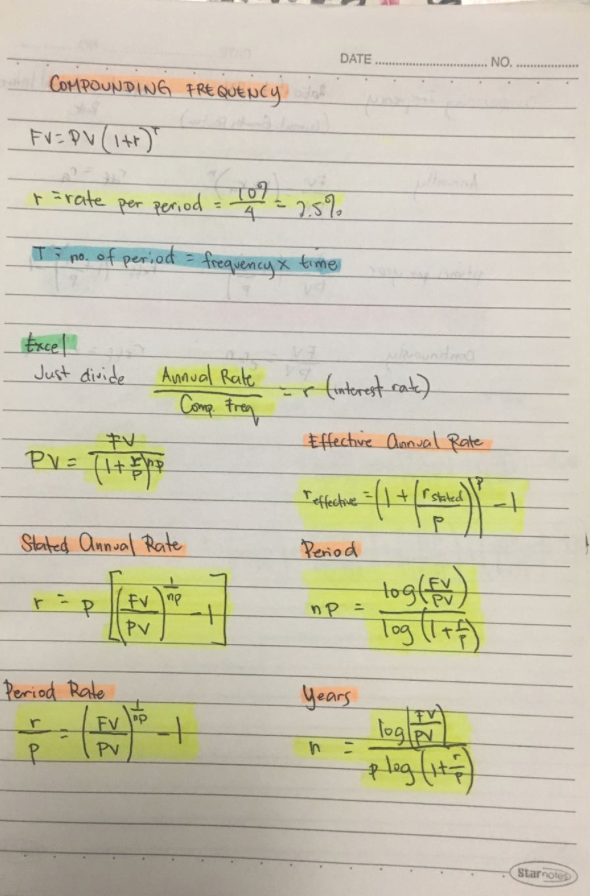 DATE .......................... NO. ................
COMPOUNDING FREQUENCY
FV = PV (1+r)^T
r = rate per period = 10%/4 = 2.5%
T = no. of period = frequency x time
Excel
Just divide Annual Rate / Comp. Freq = r (interest rate)
PV = FV / (1 + r/p)^np
Effective Annual Rate
r effective = (1 + (r stated / p))^p - 1
Stated Annual Rate
r = p [(FV/PV)^(1/np) - 1]
Period
np = log(FV/PV) / log(1 + r/p)
Period Rate
r/p = (FV/PV)^(1/np) - 1
Years
n = log(FV/PV) / p log(1 + r/p)
Starnotes